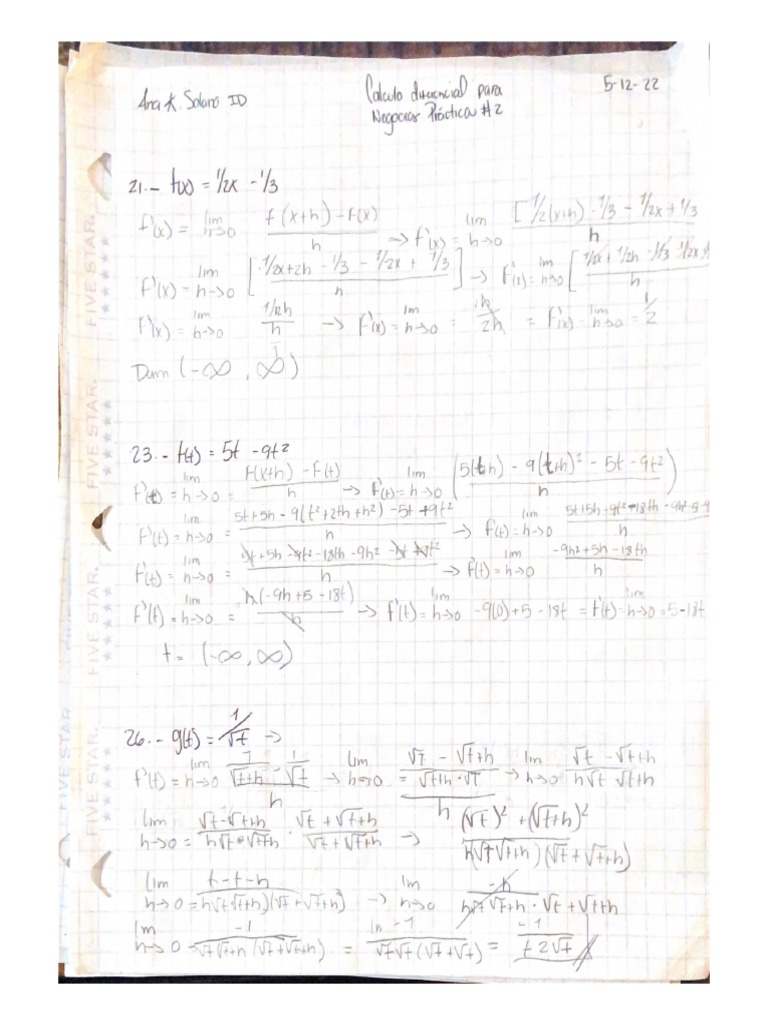 Ana K. Solano ID
Calculo diferencial para
Negocios Práctica #2
5-12-22
21.- f(x) = 1/2x - 1/3
f'(x) = lim h→0 f(x+h) - f(x) / h → f'(x) = lim h→0 [1/2(x+h) - 1/3 - 1/2x + 1/3 / h
f'(x) = lim h→0 [1/2x+2h - 1/3 - 1/2x + 1/3 / h] → f'(x) = lim h→0 [1/2x + 1/2h - 1/3 - 1/2x / h
f'(x) = lim h→0 1/2h / h → f'(x) = lim h→0 = h / 2h = f'(x) = lim h→0 = 1/2
Dom (-∞, ∞)
23.- f(t) = 5t - 9t²
f'(t) = lim h→0 = f(x+h) - f(t) / h → f'(t) = lim h→0 (5(t+h) - 9(t+h)² - 5t - 9t² / h)
f'(t) = lim h→0 = 5t+5h - 9(t²+2th+h²) - 5t + 9t² / h → f'(t) = lim h→0 5t+5h - 9t² - 18th - 9h² / h
f'(t) = lim h→0 = 5t + 5h - 9t² - 18th - 9h² - 5t + 9t² / h → f'(t) = lim h→0 -9h² + 5h - 18th / h
f'(t) = lim h→0 = h(-9h + 5 - 18t) / h → f'(t) = lim h→0 -9(0) + 5 - 18t = f'(t) = lim h→0 = 5 - 18t
t = (-∞, ∞)
26.- g(t) = 1/√t →
f'(t) = lim h→0 1/√t+h - 1/√t / h → lim h→0 = √t - √t+h / √t+h · √t / h → lim h→0 √t - √t+h / h√t √t+h
lim h→0 = √t - √t+h / h√t · √t+h · √t + √t+h / √t + √t+h → (√t)² + (√t+h)² / h(√t √t+h)(√t + √t+h)
lim h→0 = t - t - h / h√t √t+h)(√t + √t+h) → lim h→0 -h / h√t √t+h · √t + √t+h
lim h→0 -1 / √t √t+h (√t + √t+h) = -1 / √t√t (√t + √t) = -1 / t 2√t
FIVE STAR.
FIVE STAR.
FIVE STAR.
FIVE STAR